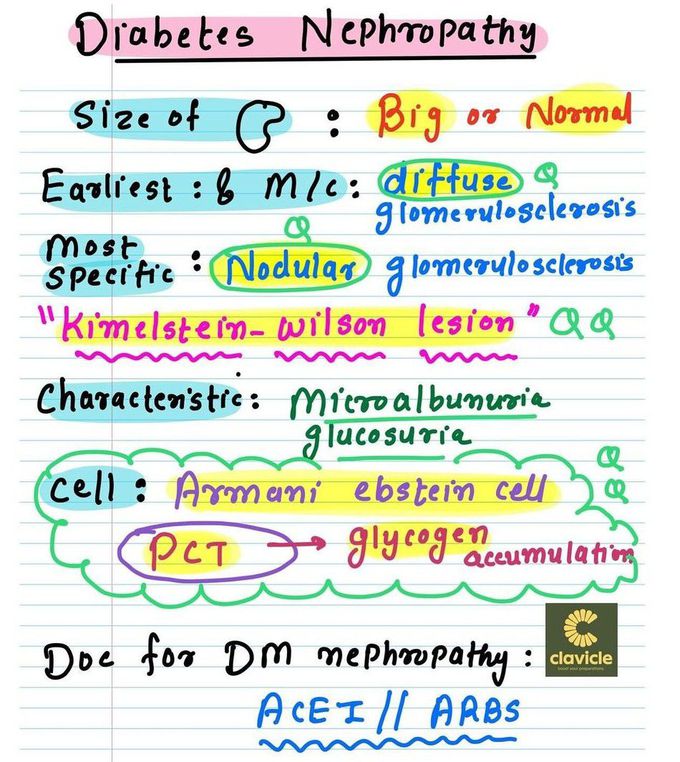 Diabetes Nephropathy
Size of : Big or Normal
Earliest : & M/c : diffuse Q
glomerulosclerosis
Q
Most
Specific : Nodular glomerulosclerosis
"Kimelstein-wilson lesion" Q Q
Characteristic : Microalbunuria
glucosuria
Q
cell : Armani ebstein cell Q
PCT → glycogen accumulation
Doc for DM nephropathy :
clavicle
boost your preparations
ACEI // ARBS